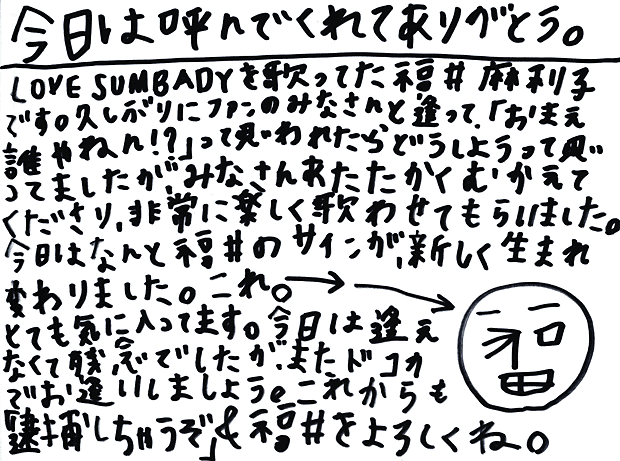 今日は呼んでくれてありがとう。
LOVE SUMBADYを歌ってた福井麻利子
です。久しぶりにファンのみなさんと逢って、「おまえ
誰やねん!?」って思われたらどうしようって思
ってましたが、みなさんあたたかくむかえて
くださり、非常に楽しく歌わせてもらいました。
今日はなんと福井のサインが、新しく生まれ
変わりました。これ。→→
とても気に入ってます。今日は逢え
なくて残念でしたが、またドコか
でお逢いしましょう。これからも
「逮捕しちゃうぞ」&福井をよろしくね。